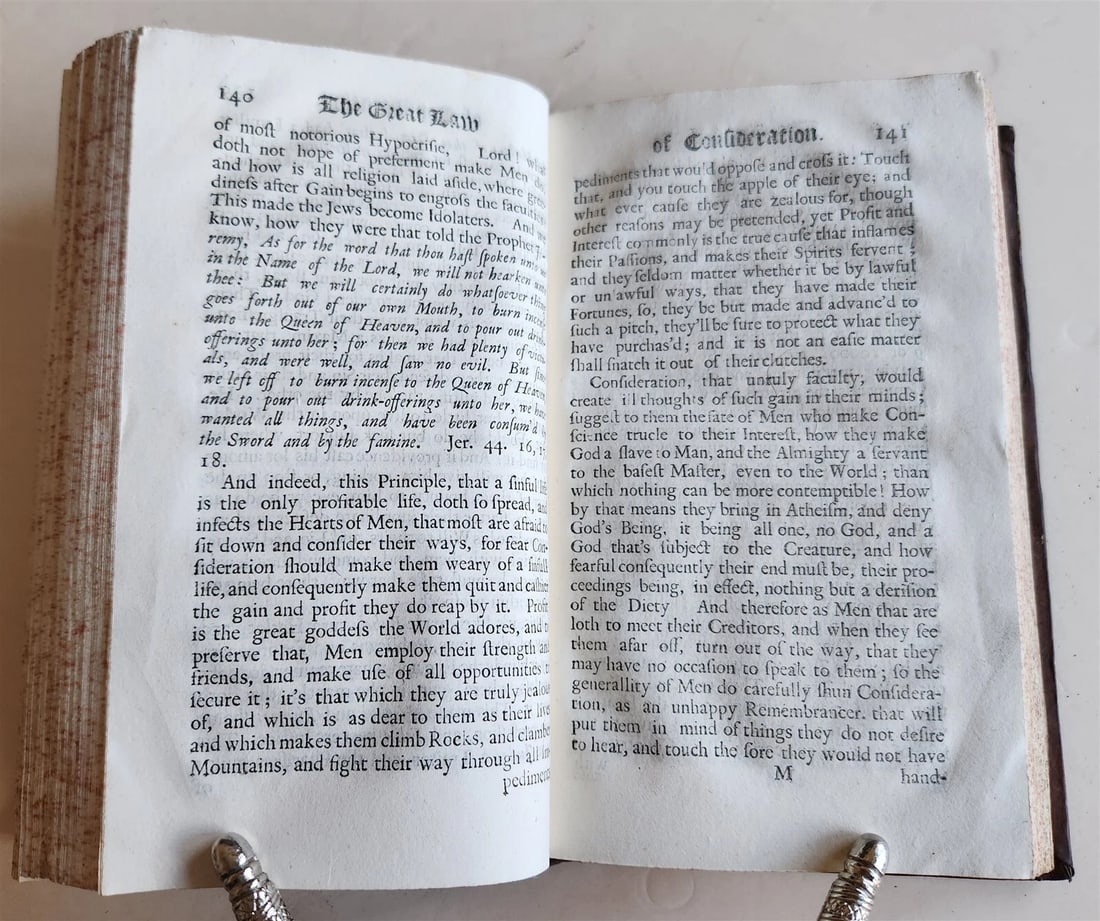 140 The Great Law
of moſt notorious Hypocriſie, Lord! what
doth not hope of preferment make Men do,
and how is all religion laid aſide, where gree-
dineſs after Gain begins to engroſs the faculties
This made the Jews become Idolaters. And we
know, how they were that told the Prophet Je-
remy, As for the word that thou haſt ſpoken unto us
in the Name of the Lord, we will not hearken unto
thee: But we will certainly do whatſoever thing
goes forth out of our own Mouth, to burn incenſe
unto the Queen of Heaven, and to pour out drink-
offerings unto her; for then we had plenty of victu-
als, and were well, and ſaw no evil. But ſince
we left off to burn incenſe to the Queen of Heaven
and to pour out drink-offerings unto her, we have
wanted all things, and have been conſum'd by
the Sword and by the famine. Jer. 44. 16,
18.
And indeed, this Principle, that a ſinful life
is the only profitable life, doth ſo ſpread, and
infects the Hearts of Men, that moſt are afraid to
ſit down and conſider their ways, for fear Con-
ſideration ſhould make them weary of a ſinfull
life, and conſequently make them quit and caſhier
the gain and profit they do reap by it. Profit
is the great goddeſs the World adores, and to
preſerve that, Men employ their ſtrength and
friends, and make uſe of all opportunities to
ſecure it; it's that which they are truly jealous
of, and which is as dear to them as their lives
and which makes them climb Rocks, and clamber
Mountains, and fight their way through all im-
pediments
of Conſideration. 141
pediments that wou'd oppoſe and croſs it: Touch
that, and you touch the apple of their eye; and
what ever cauſe they are zealous for, though
other reaſons may be pretended, yet Profit and
Intereſt commonly is the true cauſe that inflames
their Paſſions, and makes their Spirits fervent;
and they ſeldom matter whether it be by lawful
or un'awful ways, that they have made their
Fortunes, ſo, they be but made and advanc'd to
ſuch a pitch, they'll be ſure to protect what they
have purchas'd; and it is not an eaſie matter
ſhall ſnatch it out of their clutches.
Conſideration, that unruly faculty, would
create ill thoughts of ſuch gain in their minds;
ſuggeſt to them the fate of Men who make Con-
ſcience trucle to their Intereſt, how they make
God a ſlave to Man, and the Almighty a ſervant
to the baſeſt Maſter, even to the World; than
which nothing can be more contemptible! How
by that means they bring in Atheiſm, and deny
God's Being, it being all one, no God, and a
God that's ſubject to the Creature, and how
fearful conſequently their end muſt be, their pro-
ceedings being, in effect, nothing but a deriſion
of the Diety And therefore as Men that are
loth to meet their Creditors, and when they ſee
them afar off, turn out of the way, that they
may have no occaſion to ſpeak to them; ſo the
generallity of Men do carefully ſhun Conſidera-
tion, as an unhappy Remembrancer. that will
put them in mind of things they do not deſire
to hear, and touch the ſore they would not have
M hand-